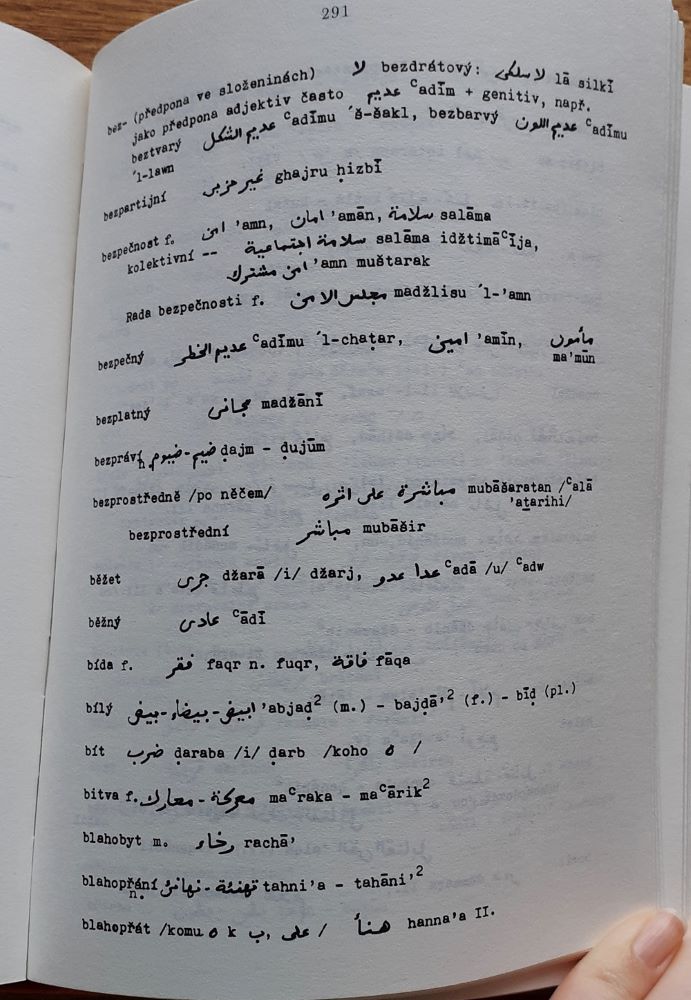 291
bez- (předpona ve složeninách) لا bezdrátový: لاسلكى lā silkī
jako předpona adjektiv často عديم ᶜadīm + genitiv, např.
beztvarý عديم الشكل ᶜadīmu ´š-šakl, bezbarvý عديم اللون ᶜadīmu
´l-lawn
bezpartijní غير حزبى ghajru ḥizbī
bezpečnost f. امن 'amn, امان 'amān, سلامة salāma
kolektivní -- سلامة اجتماعية salāma idžtimāᶜīja,
امن مشترك 'amn muštarak
Rada bezpečnosti f. مجلس الامن madžlisu ´l-'amn
bezpečný عديم الخطر ᶜadīmu ´l-chaṭar, امين 'amīn, مأمون
ma'mūn
bezplatný مجانى madžānī
bezpráví n. ضيم - ضيوم ḍajm - ḍujūm
bezprostředně /po něčem/ مباشرة على اثره mubāšaratan /ᶜalā
'aṯarihi/
bezprostřední مباشر mubāšir
běžet جرى džarā /i/ džarj, عدا عدو ᶜadā /u/ ᶜadw
běžný عادى ᶜādī
bída f. فقر faqr n. fuqr, فاقة fāqa
bílý ابيض - بيضاء - بيض 'abjaḍ² (m.) - bajḍā'² (f.) - bīḍ (pl.)
bít ضرب ḍaraba /i/ ḍarb /koho ه /
bitva f. معركة - معارك maᶜraka - maᶜārik²
blahobyt m. رخاء rachā'
blahopřání n. تهنئة - تهانئ tahni'a - tahāni'²
blahopřát /komu ه k ب, على / هنأ hanna'a II.